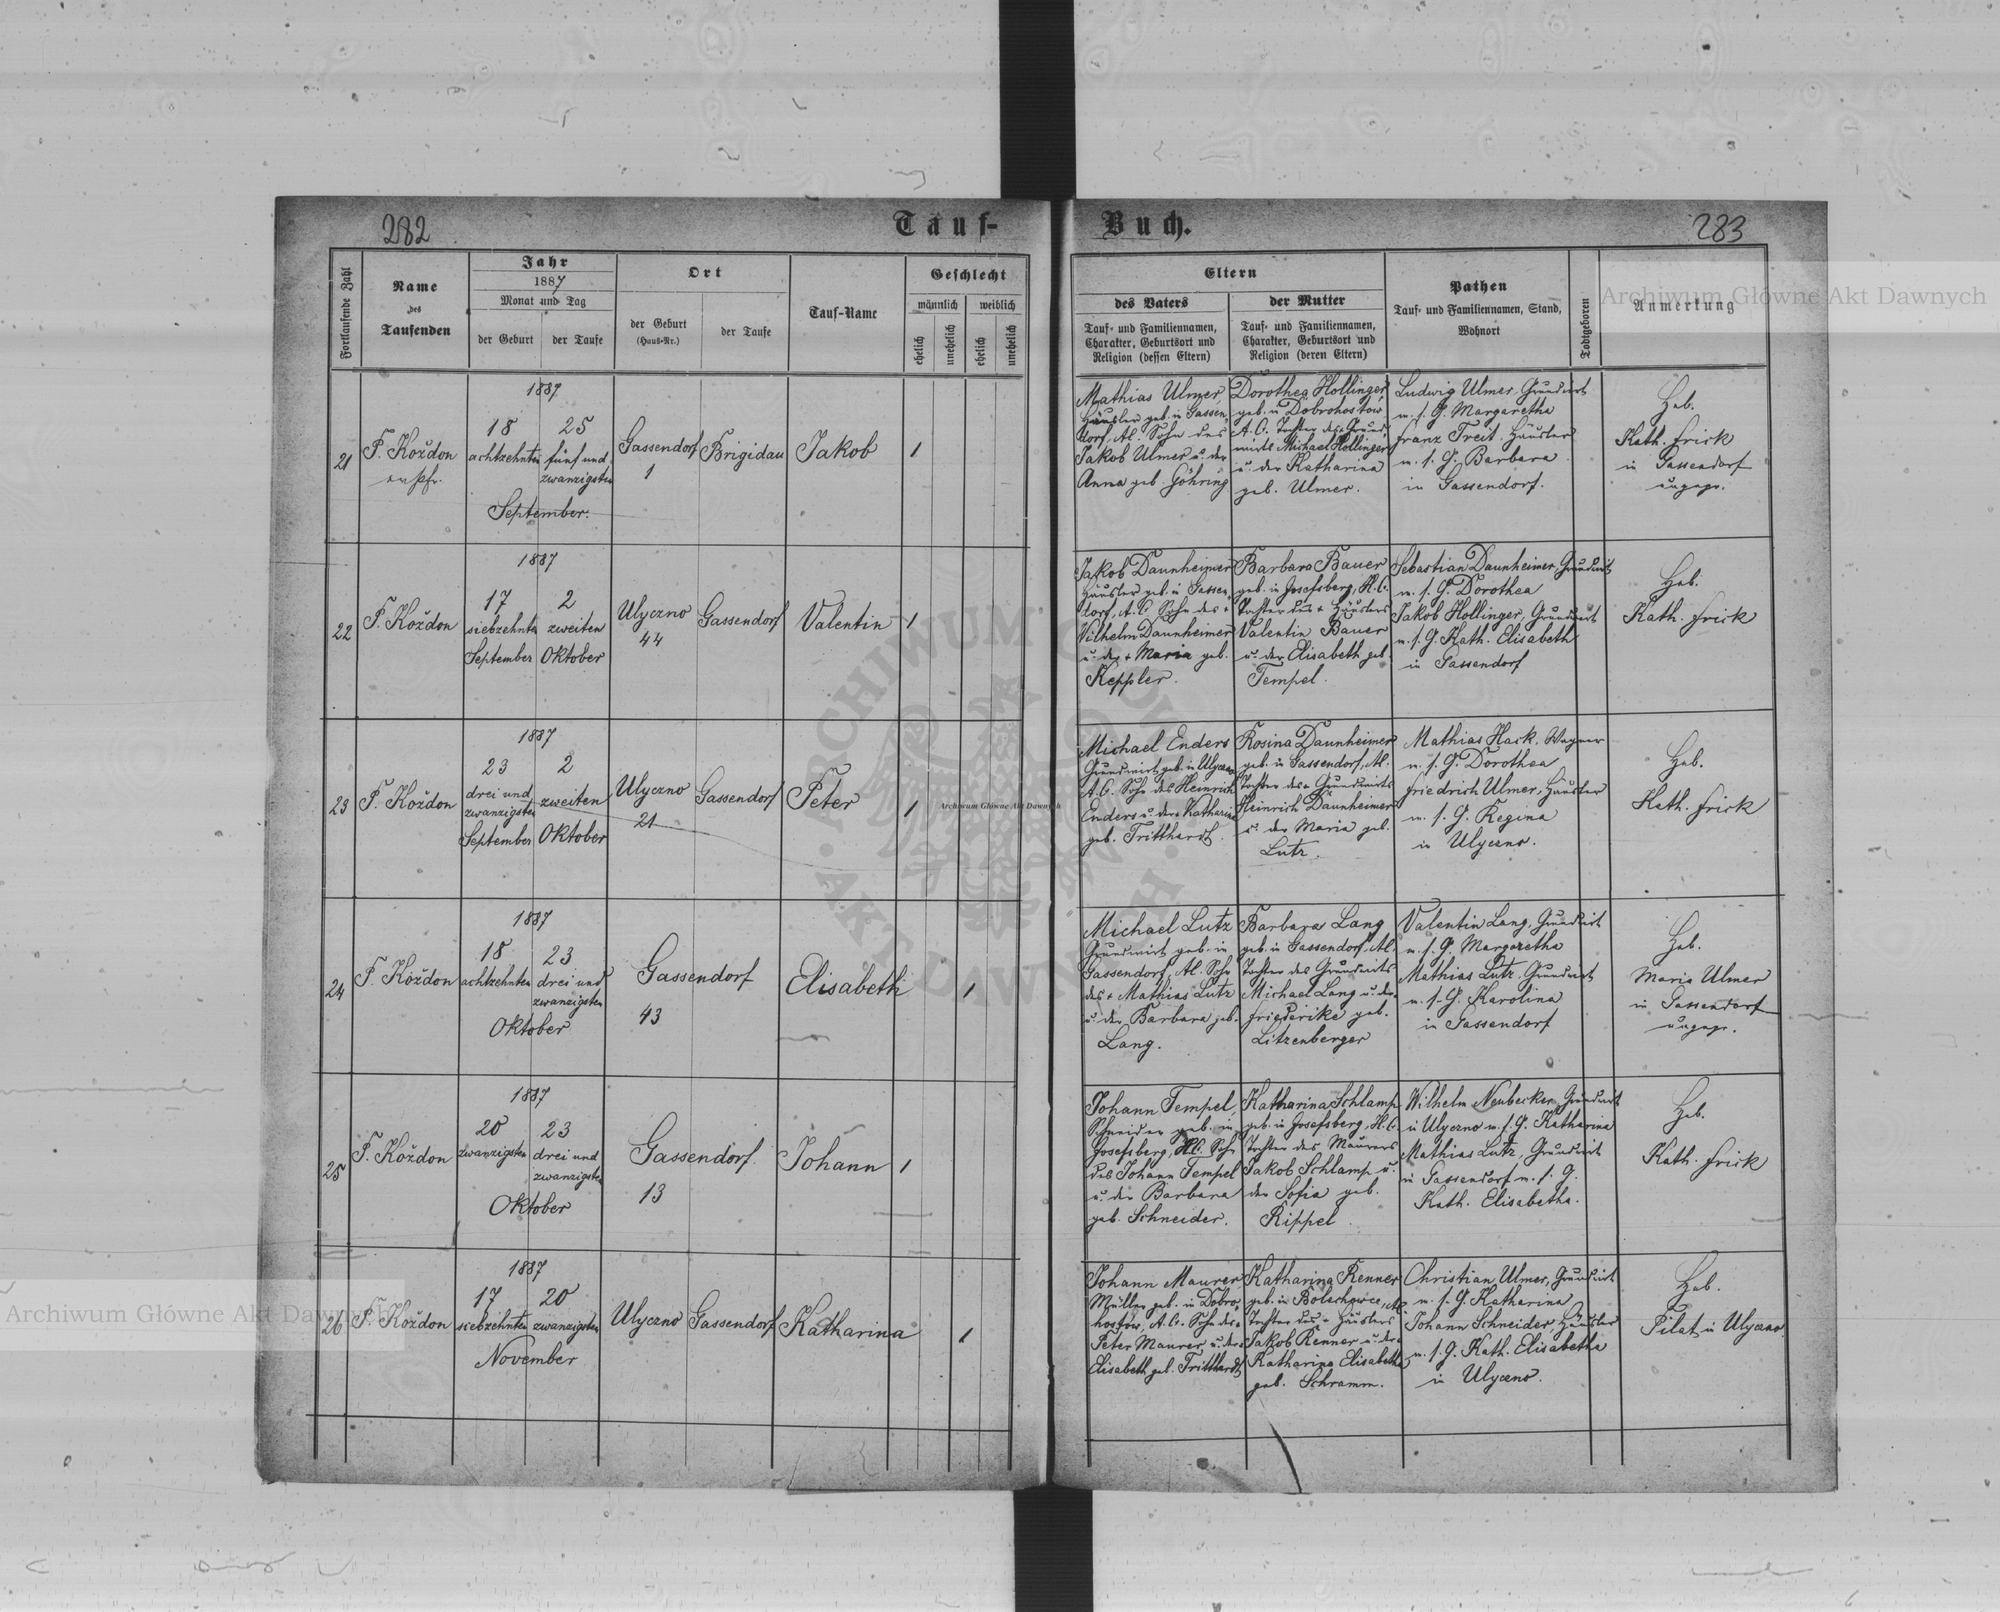 282
Tauf-
Buch.
283
Fortlaufende Zahl
Name
des
Taufenden
Jahr
1887
Monat und Tag
der Geburt
der Taufe
Ort
der Geburt
(Haus-Nr.)
der Taufe
Tauf-Name
Geschlecht
männlich
weiblich
ehelich
unehelich
ehelich
unehelich
Eltern
des Vaters
Tauf- und Familiennamen,
Charakter, Geburtsort und
Religion (dessen Eltern)
der Mutter
Tauf- und Familiennamen,
Charakter, Geburtsort und
Religion (deren Eltern)
Pathen
Tauf- und Familiennamen, Stand,
Wohnort
Todtgeboren
Anmerkung
21
F. Koždon
1887
18
achtzehnten
25
fünf und
zwanzigsten
September.
Gassendorf
1
Brigidau
Jakob
1
Mathias Ulmer,
Häusler geb. in Gassen
dorf, A.C. Sohn des
Jakob Ulmer u. der
Anna geb. Göhring
Dorothea Hollinger,
geb. in Dobrohostow
A.C. Tochter des Grund
wirts Michael Hollinger
u. der Katharina
geb. Ulmer.
Ludwig Ulmer, Grundwirt
m. s. G. Margaretha
Franz Treit, Häusler
m. s. G. Barbara
in Gassendorf.
Heb.
Kath. Frick
in Gassendorf
ungepr.
22
F. Koždon
1887
17
siebzehnten
September
2
zweiten
Oktober
Ulyczno
44
Gassendorf
Valentin
1
Jakob Daunheimer
Häusler geb. in Gassen
dorf, A.C. Sohn des +
Wilhelm Daunheimer
u. der + Maria geb.
Keppler.
Barbara Bauer
geb. in Josefsberg, H.C.
Tochter des + Häuslers
Valentin Bauer
u. der Elisabeth geb.
Tempel.
Sebastian Daunheimer, Grundwirt
m. s. G. Dorothea
Jakob Hollinger, Grundwirt
m. s. G. Kath. Elisabeth
in Gassendorf
Heb.
Kath. Frick
23
F. Koždon
1887
23
drei und
zwanzigsten
September
2
zweiten
Oktober
Ulyczno
21
Gassendorf
Peter
1
Michael Enders
Grundwirt geb. in Ulyczno
A.C. Sohn des Heinrich
Enders u. der + Katharina
geb. Tritthardt.
Rosina Daunheimer
geb. in Gassendorf, A.C.
Tochter des Grundwirts
Heinrich Daunheimer
u. der Maria geb.
Lutz.
Mathias Hack, Wagner
m. s. G. Dorothea
Friedrich Ulmer, Häusler
m. s. G. Regina
in Ulyczno.
Heb.
Kath. Frick
24
F. Koždon
1887
18
achtzehnten
23
drei und
zwanzigsten
Oktober
Gassendorf
43
Elisabeth
1
Michael Lutz
Grundwirt geb. in
Gassendorf, A.C. Sohn
des + Mathias Lutz
u. der Barbara geb.
Lang.
Barbara Lang
geb. in Gassendorf, A.C.
Tochter des Grundwirts
Michael Lang u. der
Friederike geb.
Litzenberger
Valentin Lang, Grundwirt
m. s. G. Margaretha
Mathias Lutz, Grundwirt
m. s. G. Karolina
in Gassendorf
Heb.
Maria Ulmer
in Gassendorf
ungepr.
25
F. Koždon
1887
20
zwanzigsten
23
drei und
zwanzigsten
Oktober
Gassendorf.
13
Johann
1
Johann Tempel,
Schneider geb. in
Josefsberg, H.C. Sohn
des Johann Tempel
u. der Barbara
geb. Schneider.
Katharina Schlamp
geb. in Josefsberg, H.C.
Tochter des Maurers
Jakob Schlamp u.
der Sofia geb.
Rippel.
Wilhelm Neubecker, Grundwirt
in Ulyczno m. s. G. Katharina
Mathias Lutz, Grundwirt
in Gassendorf m. s. G.
Kath. Elisabetha.
Heb.
Kath. Frick
26
F. Koždon
1887
17
siebzehnten
20
zwanzigsten
November
Ulyczno
Gassendorf
Katharina
1
Johann Maurer
Müller geb. in Dobro
hostow, A.C. Sohn des
Peter Maurer u. der
Elisabeth geb. Tritthardt
Katharina Renner
geb. in Bolechowce, A.C.
Tochter des + Häuslers
Jakob Renner u. der
Katharina Elisabetha
geb. Schramm.
Christian Ulmer, Grundwirt
m. s. G. Katharina
Johann Schneider, Häusler
m. s. G. Kath. Elisabetha
in Ulyczno.
Heb.
Pilat in Ulyczno
Archiwum Główne Akt Dawnych
Archiwum Główne Akt Dawnych
Archiwum Główne Akt Dawnych